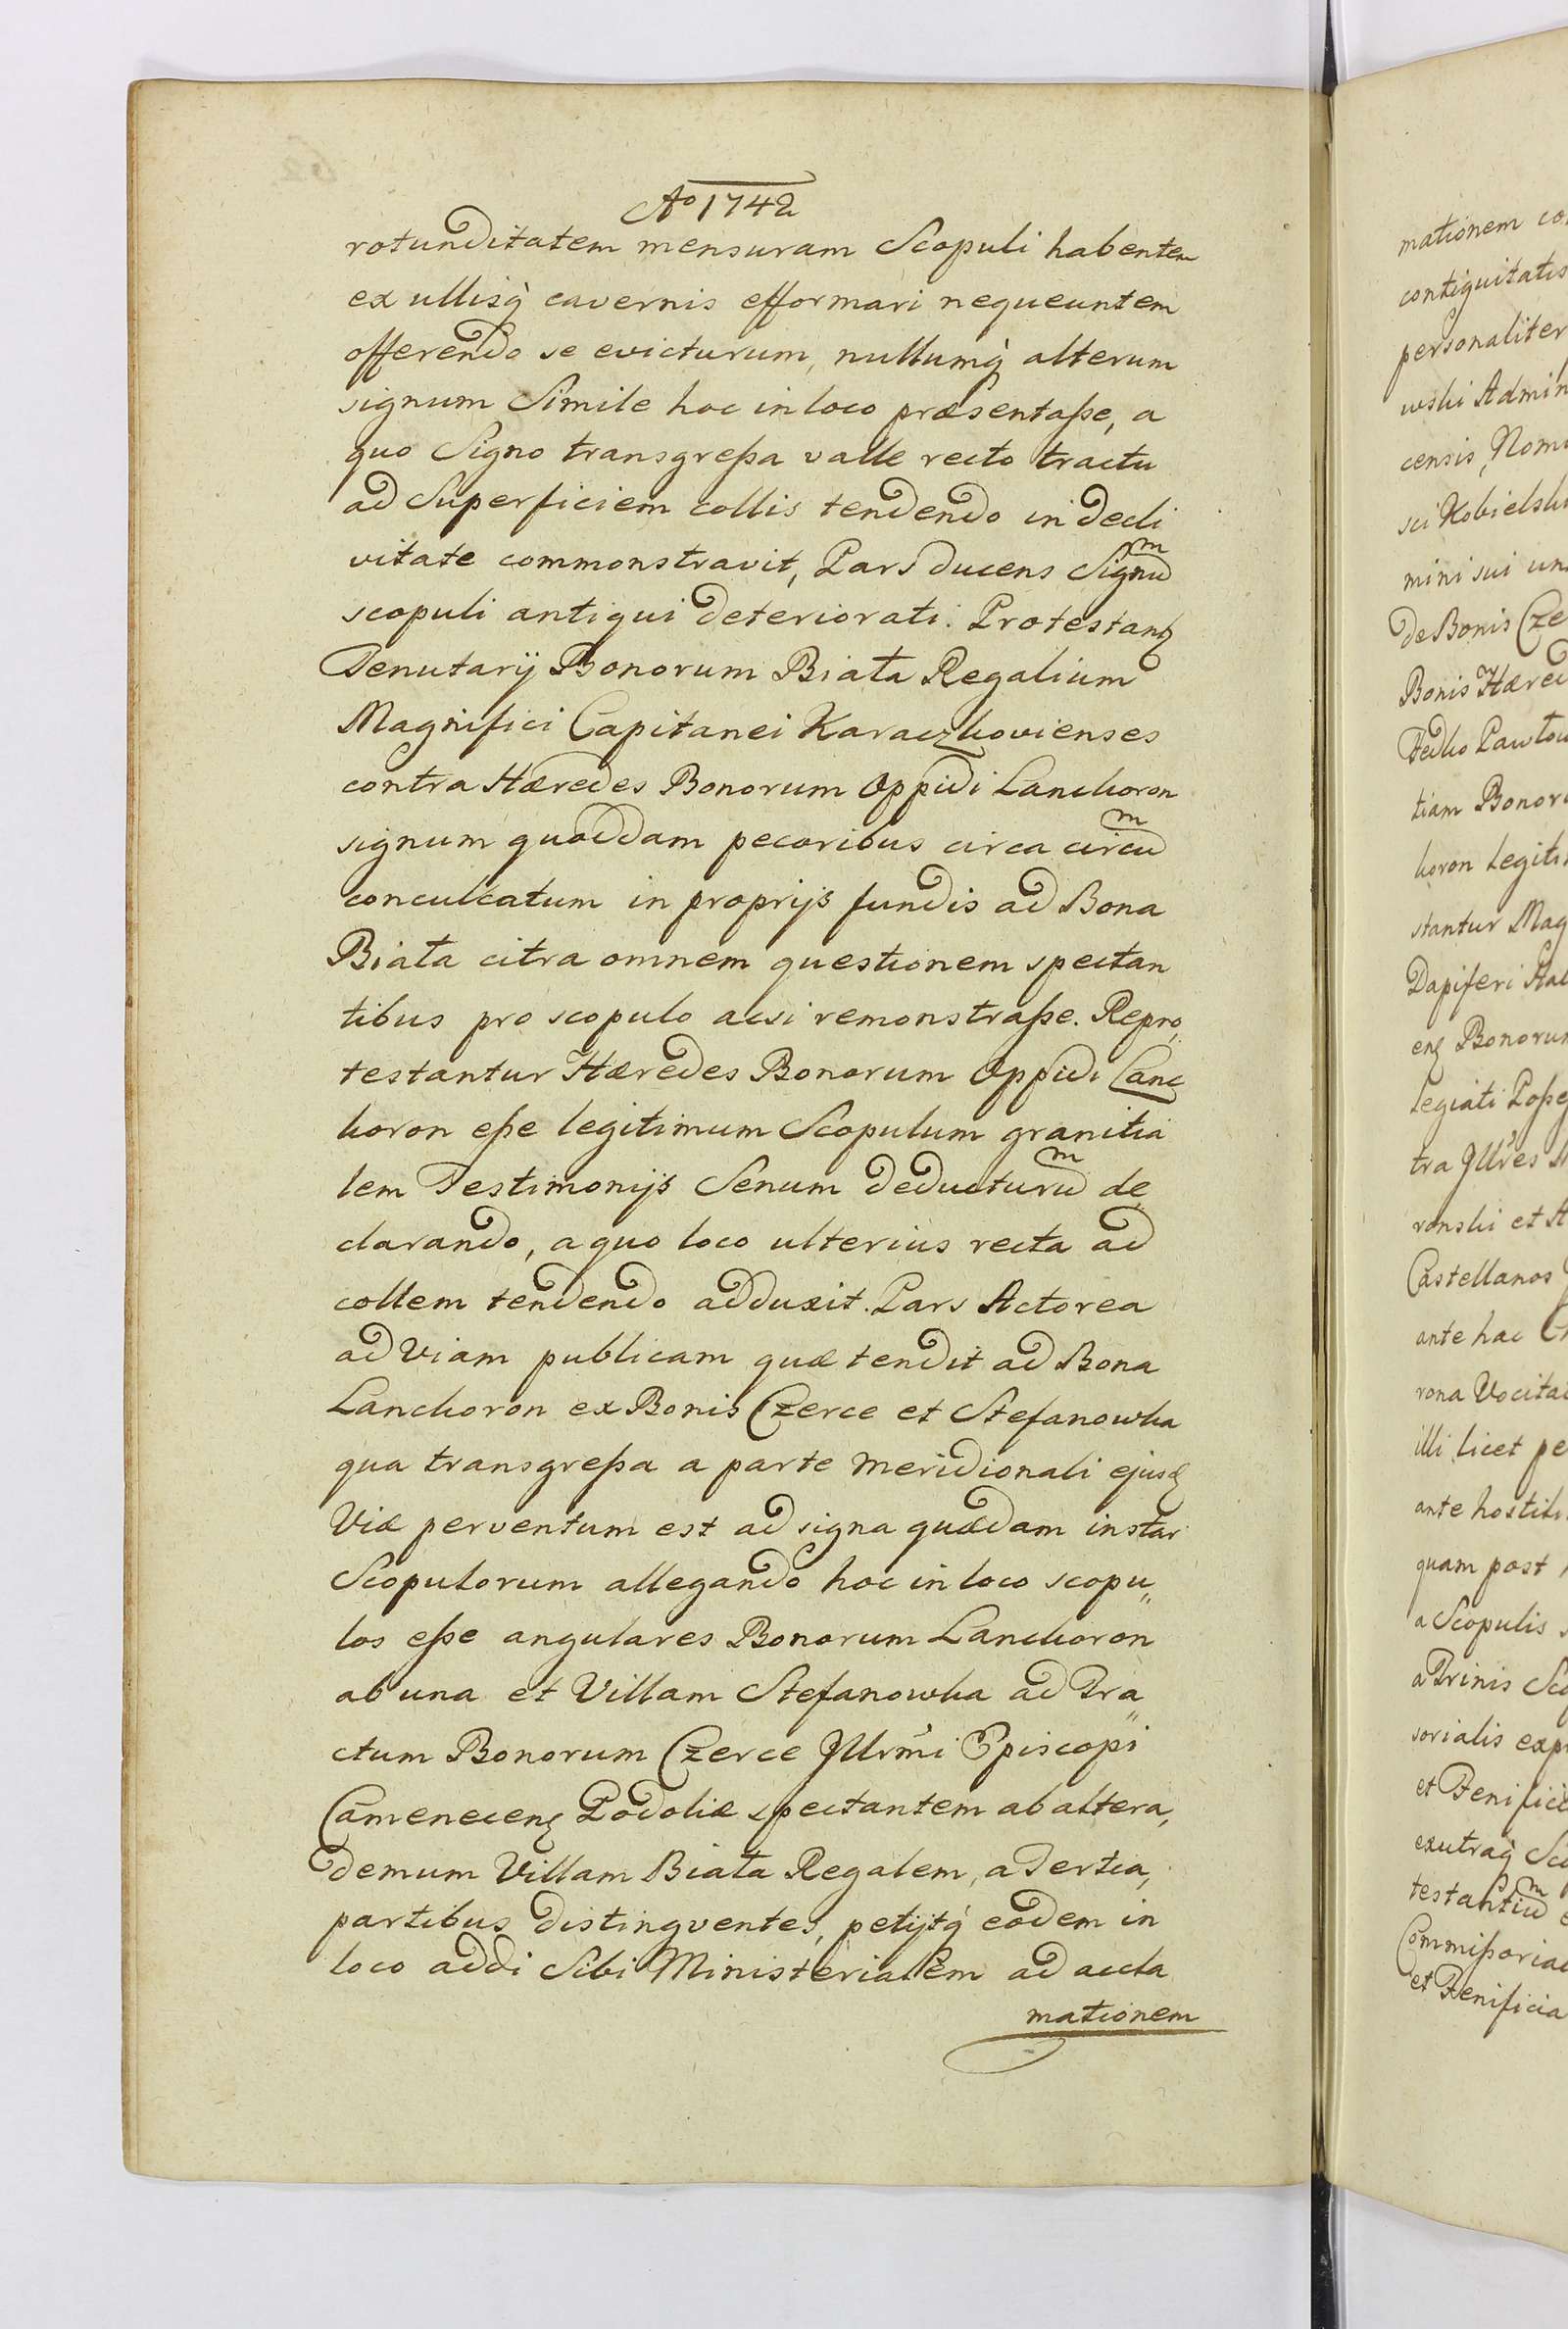 Ao 1742
rotunditatem mensuram Scopuli habentem
ex ullisq̀ cavernis efformari nequeuntem
offerendo se evicturum, nullumq̀ alterum
signum Simile hoc in loco præsentaße, a
quo Signo transgreßa valle recto tractu
ad Superficiem collis tendendo in decli
vitate commonstravit, Pars ducens Signum
scopuli antiqui deteriorati. Protestantʒ
Tenutarij Bonorum Biała Regalium
Magnifici Capitanei Karaczkovienses
contra Hæredes Bonorum Oppidi Lanckoron
signum quoddam pecoribus circa circum
conculcatum in proprijs fundis ad Bona
Biała citra omnem questionem spectan
tibus pro scopulo acsi remonstraße. Repro„
testantur Hæredes Bonorum Oppidi Lanc
koron eße legitimum Scopulum granitia
lem Testimonijs Senum deducturum de„
clarando, a quo loco ulterius recta ad
collem tendendo adduxit. Pars Actorea
ad Viam publicam quæ tendit ad Bona
Lanckoron ex Bonis Czerce et Stefanowka
qua transgreßa a parte meridionali ejusd
Viæ perventum est ad signa quædam instar
Scopulorum allegando hoc in loco scopu„
los eße angulares Bonorum Lanckoron
ab una et Villam Stefanowka ad Tra„
ctum Bonorum Czerce Jllrmi Episcopi
Camenecenʒ Podoliæ spectantem ab altera,
demum Villam Biała Regalem, a Tertia,
partibus distingventes, petijtq̀ eodem in
loco addi Sibi Ministerialem ad accla
mationem
mationem
contiguitatis
personaliter
wski
censis
mini sui
de Bonis
Bonis
tiam
koron
stantur
Dapiferi
Bonorum
legiati
tra Jllres
ronski et
Castellanos
ante hac
rona
illi licet
ante
quam post
a Scopulis
a Trinis
sorialis
et
exutraq̀
testantium
et